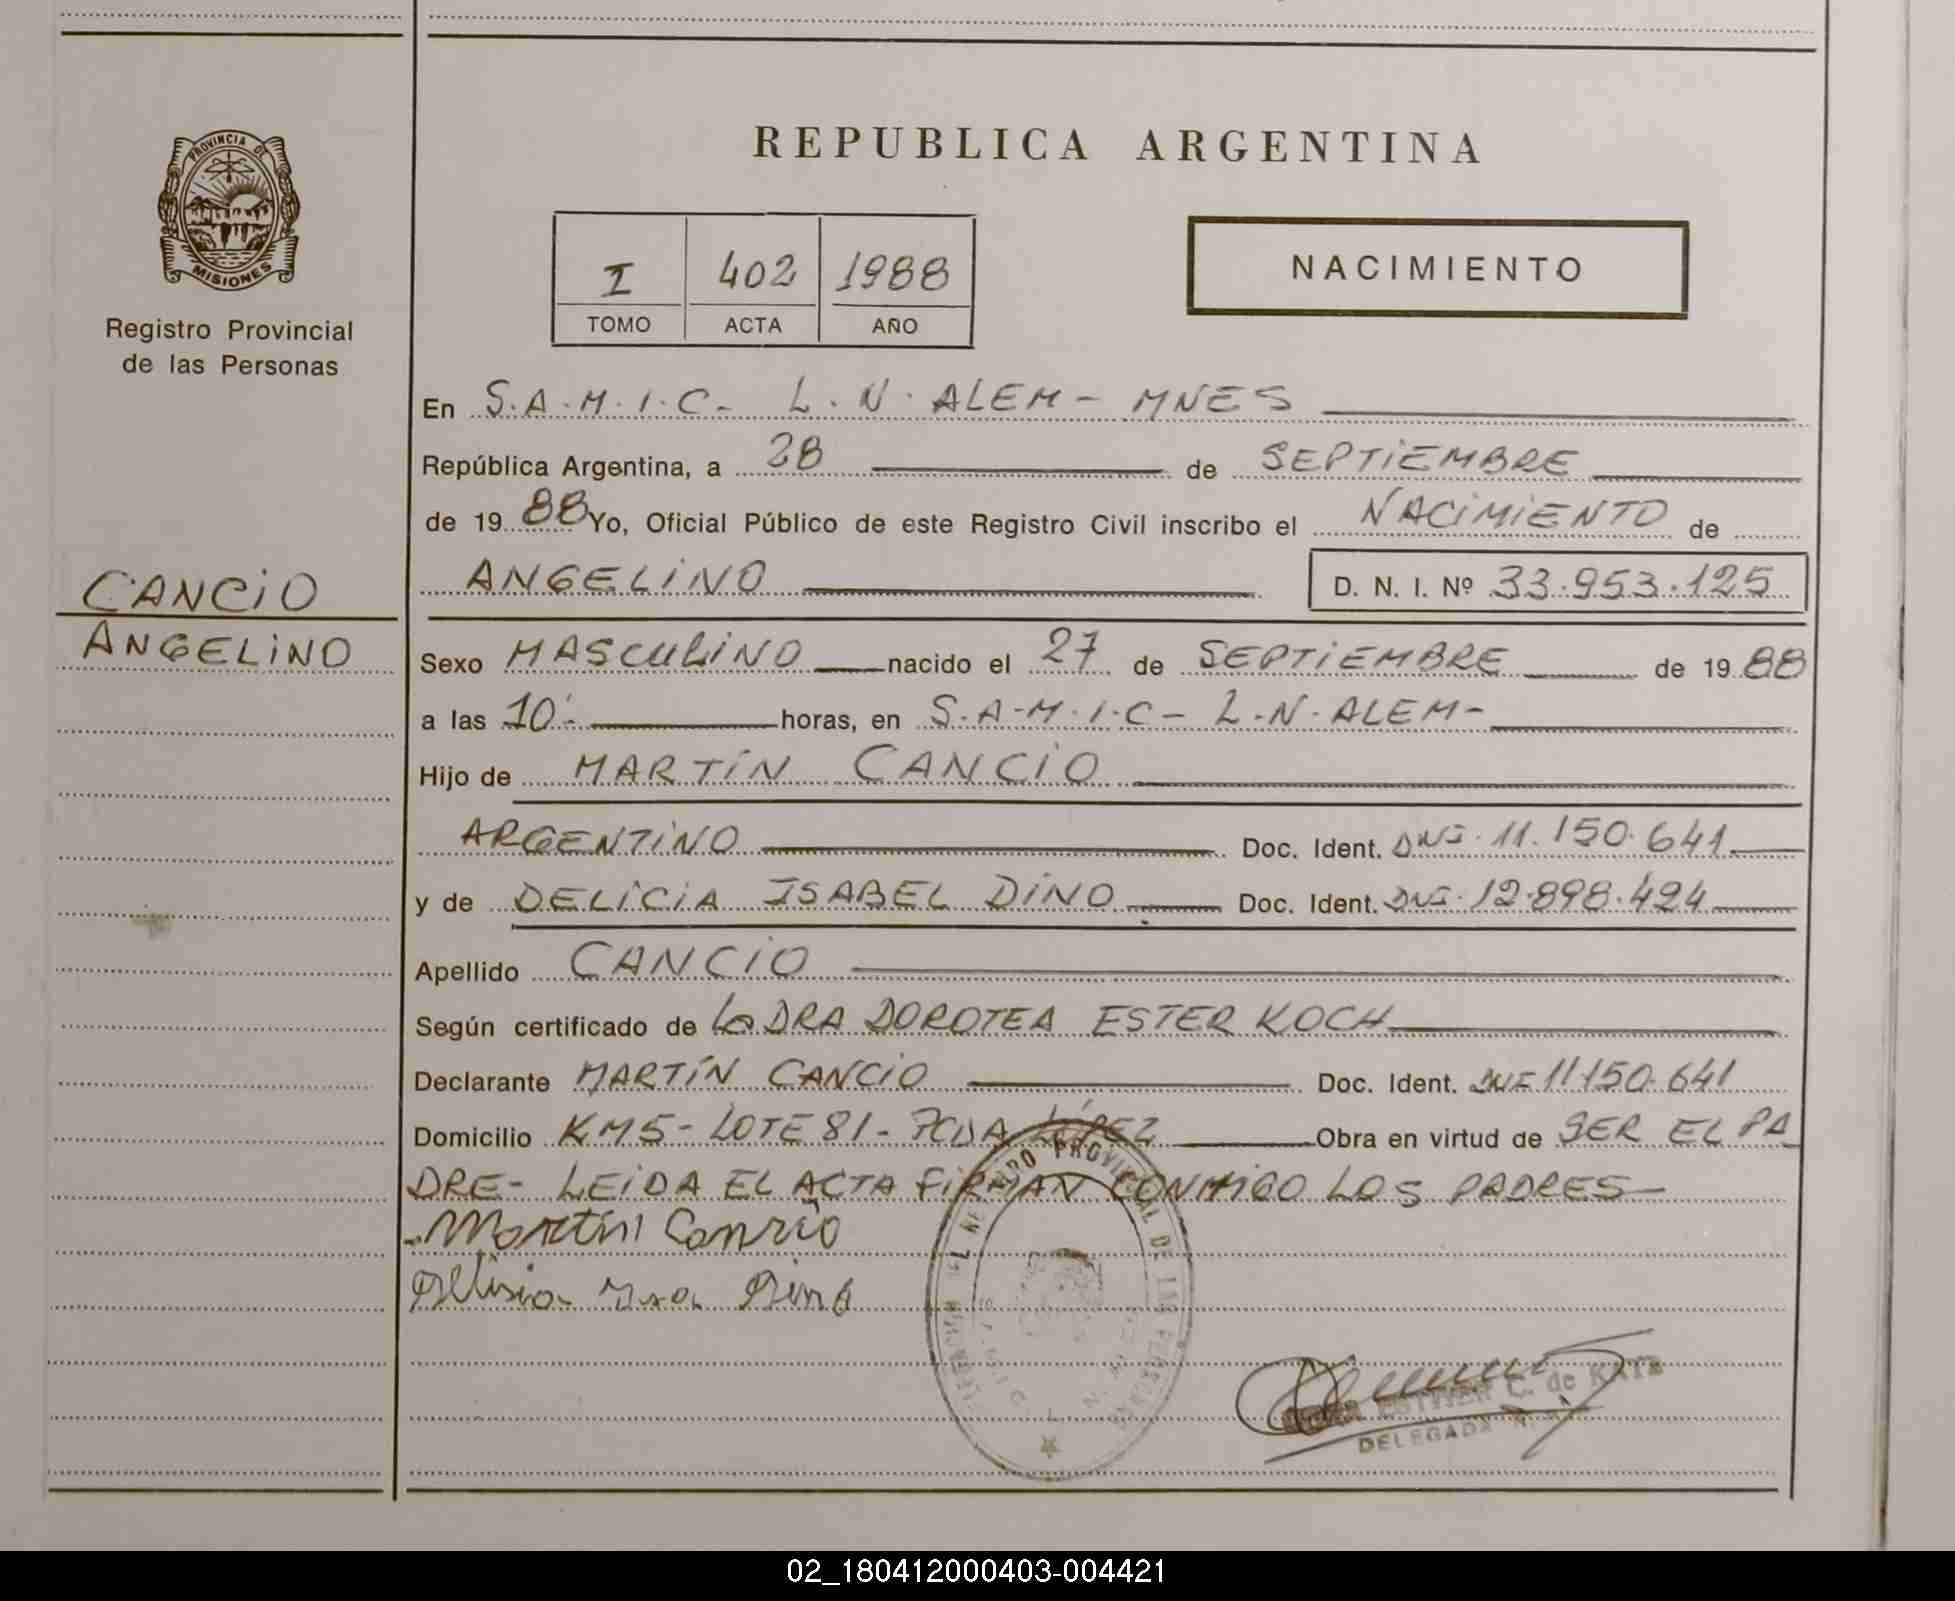 PROVINCIA DE
MISIONES
Registro Provincial
de las Personas
CANCIO
ANGELINO
REPUBLICA ARGENTINA
I 402 1988
TOMO ACTA AÑO
NACIMIENTO
En S.A.M.I.C- L.N.ALEM- MNES
República Argentina, a 28 de SEPTIEMBRE
de 19 88 Yo, Oficial Público de este Registro Civil inscribo el NACIMIENTO de
ANGELINO D. N. I. Nº 33.953.125
Sexo MASCULINO nacido el 27 de SEPTIEMBRE de 19 88
a las 10.- horas, en S.A.M.I.C- L.N.ALEM-
Hijo de MARTÍN CANCIO
ARGENTINO Doc. Ident. DNI. 11.150.641
y de DELICIA ISABEL DINO Doc. Ident. DNI. 12.898.424
Apellido CANCIO
Según certificado de La DRA DOROTEA ESTER KOCH
Declarante MARTÍN CANCIO Doc. Ident. DNI 11.150.641
Domicilio KM5- LOTE 81- PCIA LÓPEZ Obra en virtud de SER EL PA
DRE- LEIDA EL ACTA FIRMAN CONMIGO LOS PADRES-
Martin Cancio
Dino
REGISTRO PROVINCIAL DE LAS PERSONAS
C. de KATZ
DELEGADA
02_180412000403-004421